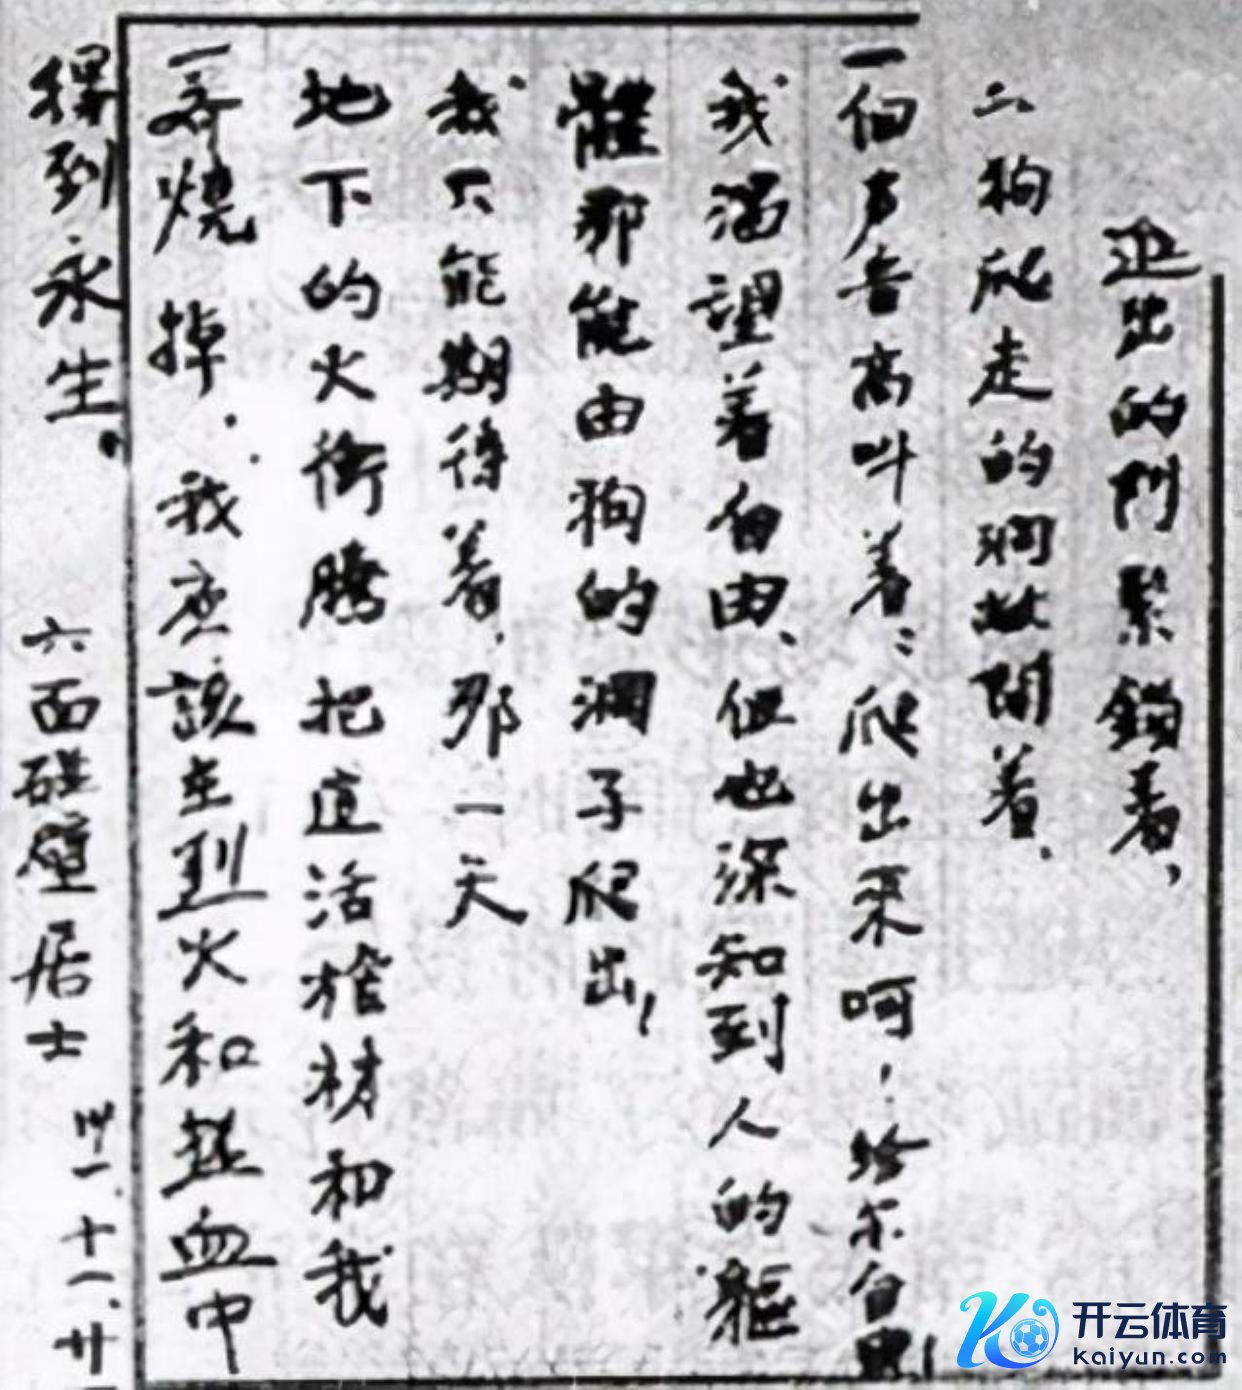 进出的門緊鎖着，
狗爬走的洞敞開着、
一個声音高叫着：爬出來呵！給尔自由！
我渴望着自由、但也深知到人的軀
體那能由狗的洞子爬出！
我只能期待着，那一天
地下的火衝騰把這活棺材和我
一齊燒掉．我应該在烈火和熱血中
得到永生。
六面碰壁居士 卅一．十一．廿
开云体育
kaiyun.com